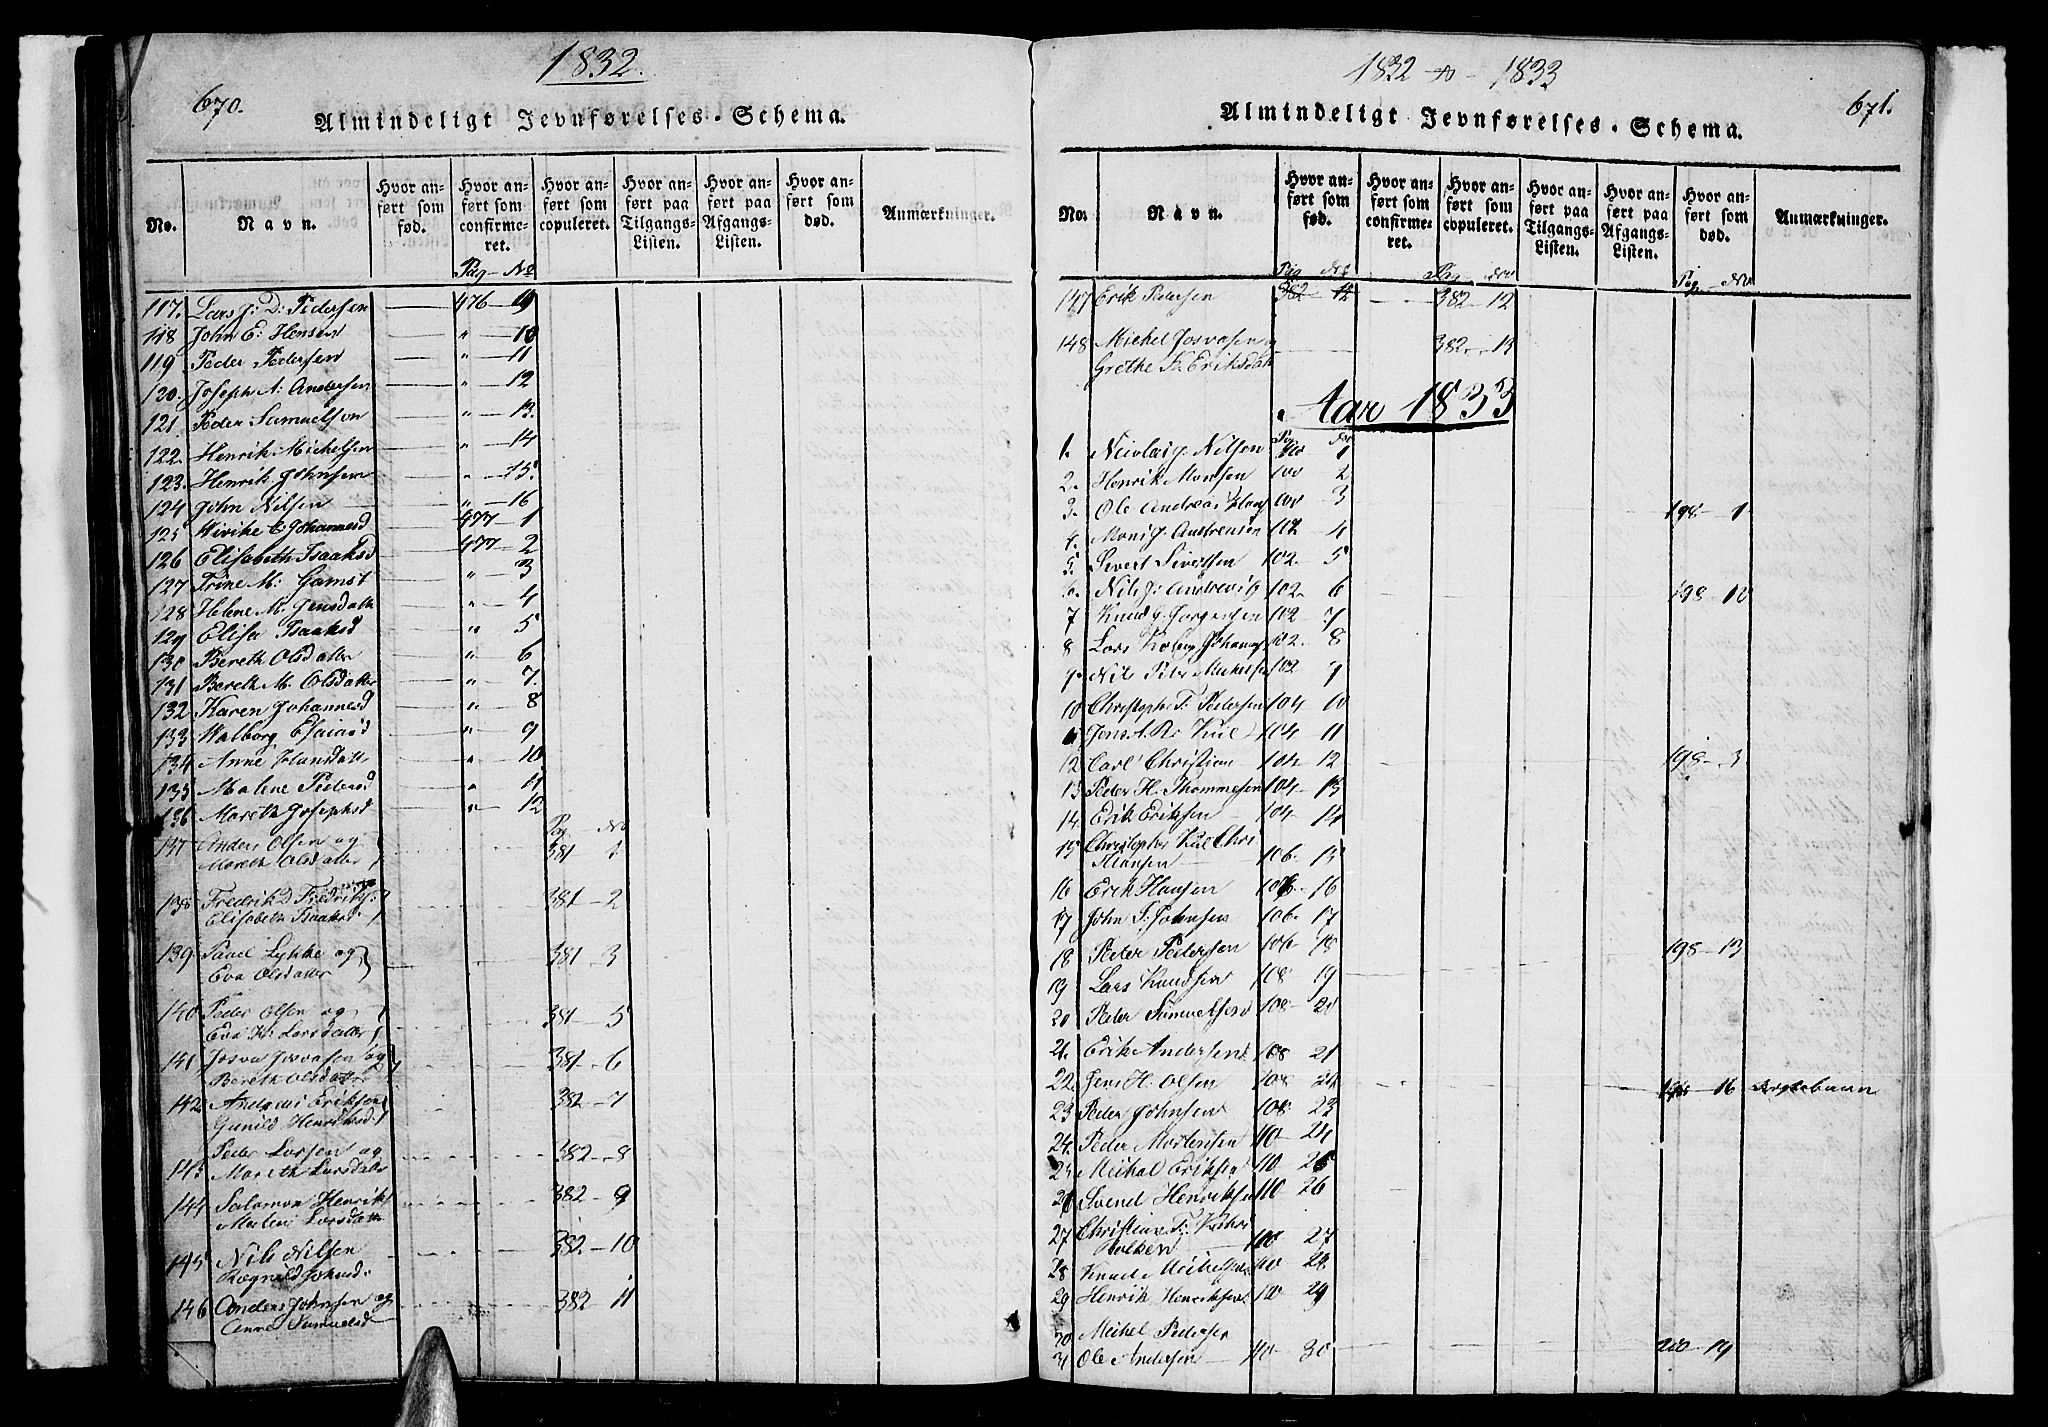 1832.
670.
Almindeligt Jevnførelses-Schema.
No.
Navn.
Hvor anført som fød.
Hvor anført som confirmeret.
Hvor anført som copuleret.
Hvor anført paa Tilgangs-Listen.
Hvor anført paa Afgangs-Listen.
Hvor anført som død.
Anmærkninger.
Pag - No
117. Lars J: D: Pedersen 476 - 9
118 John E: Hensen " - 10
119 Peder Pedersen " - 11
120. Joseph A: Andersen " - 12
121. Peder Samuelson " - 13.
122. Henrik Michelsen " - 14
123. Henrik Johnsen " - 15.
124 John Nilsen " - 16
125 Wivike E Johannesd 477 - 1
126 Elisabeth Isaaksd 477 - 2
127 Trine M: Gamst " - 3
128 Helene M. Jensdatte " - 4
129 Elisa Isaaksd " - 5
130 Bereth Olsdatter " - 6
131 Bereth M. Olsdatter " - 7.
132 Karen Johannesd " - 8
133 Walborg Esaiasd " - 9
134 Anne Hansdatt " - 10
135 Malene Pedersd " - 11
136 Mareth Josephsd " - 12
Pag - Nro
137 Anders Olsen og
Mareth Olsdatter 381 - 1.
138 Fredrik D Fredriks:
Elisabeth Isaaksd. 381 - 2
139 Paul Lykke og
Eva Olsdatter 381 - 3
140 Peder Olsen og
Eva K: Larsdatter 381 - 5
141 Josva Josvasen og
Bereth Olsdatter 381 - 6
142 Andreas Eriksen
Gunild Henriksd 382 - 7
143 Peder Larsen og
Mareth Larsdatt 382 - 8
144 Salamon Henrik
Larsdatt 382 - 9
145 Nils Nilsen
Rognild Johnsd. 382 - 10
146 Anders Johnsen og
Anne Samuelsd 382 - 11
1832 - 1833
671.
Almindeligt Jevnførelses-Schema.
No.
Navn.
Hvor anført som fød.
Hvor anført som confirmeret.
Hvor anført som copuleret.
Hvor anført paa Tilgangs-Listen.
Hvor anført paa Afgangs-Listen.
Hvor anført som død.
Anmærkninger.
Pag Nro Pag Nro Pag - Nro
147 Erik Pedersen 382 - 12 382 - 12
148 Michel Josvasen og
Grethe K. Eriksdatt 382 - 13
Aar 1833
Pag Nro
1. Nicolai J. Nilsen 1
2. Henrik Monsen 100 2
3. Ole Andreas 3 198 - 1
4. Mons J. Andreasen 102 - 4
5. Sivert Sivertsen 102. - 5
6. Nils J: 102. - 6 198 - 10
7 Knud J. Jørgensen 102 - 7
8 Lars 102. 8
9. Nils Peter Mickelsen 102 9
10 Christoph T: Pedersen 104 10
11 Jens A. 104 - 11
12 Carl Christian 104 - 12 198 - 3
13 Peder H. Thommesen 104 - 13
14. Erik Eriksen 104 - 14
15 Christopher
Kiil Christiansen 106. - 15
16 Erik Hansen 106 - 16
17 John S. Johnsen 106. - 17
18 Peder Pedersen 106 - 18 198 - 13
19 Lars Knudsen 108 - 19
20 Peder Samuelsen 108 - 20
21. Erik Andersen 108 21
22. Jens H. Olsen 108 22 198 - 16
23 Peder Johnsen 108. 23
24. Peder Mortensen 110 - 24
25. Meikal Eriksen 110 - 25
26 Svend Henriksen 110 26
27 Christian F.
110 27
28 Knud 110 28
29 Henrik Henriksen 110 29
30 Meikel Pedersen
31 Ole Andersen 110 - 30 200 - 19